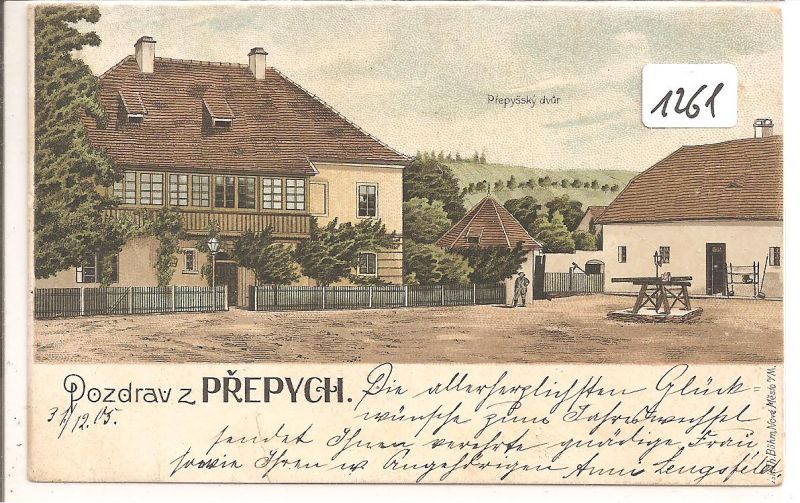 1261
Přepyšský dvůr
Pozdrav z PŘEPYCH.
31/12.05.
Die allerherzlichsten Glück-
wünsche zum Jahreswechsel
sendet Ihnen verehrte gnädige Frau
sowie Ihren w Angehörigen Anni Lengsfeld
Böhm, Nové Město n/M.